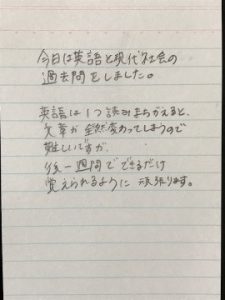 今日は英語と現代社会の
過去問をしました。
英語は1つ読みまちがえると、
文章が全然変わってしまうので
難しいですが、
後一週間でできるだけ
覚えられるように頑張ります。